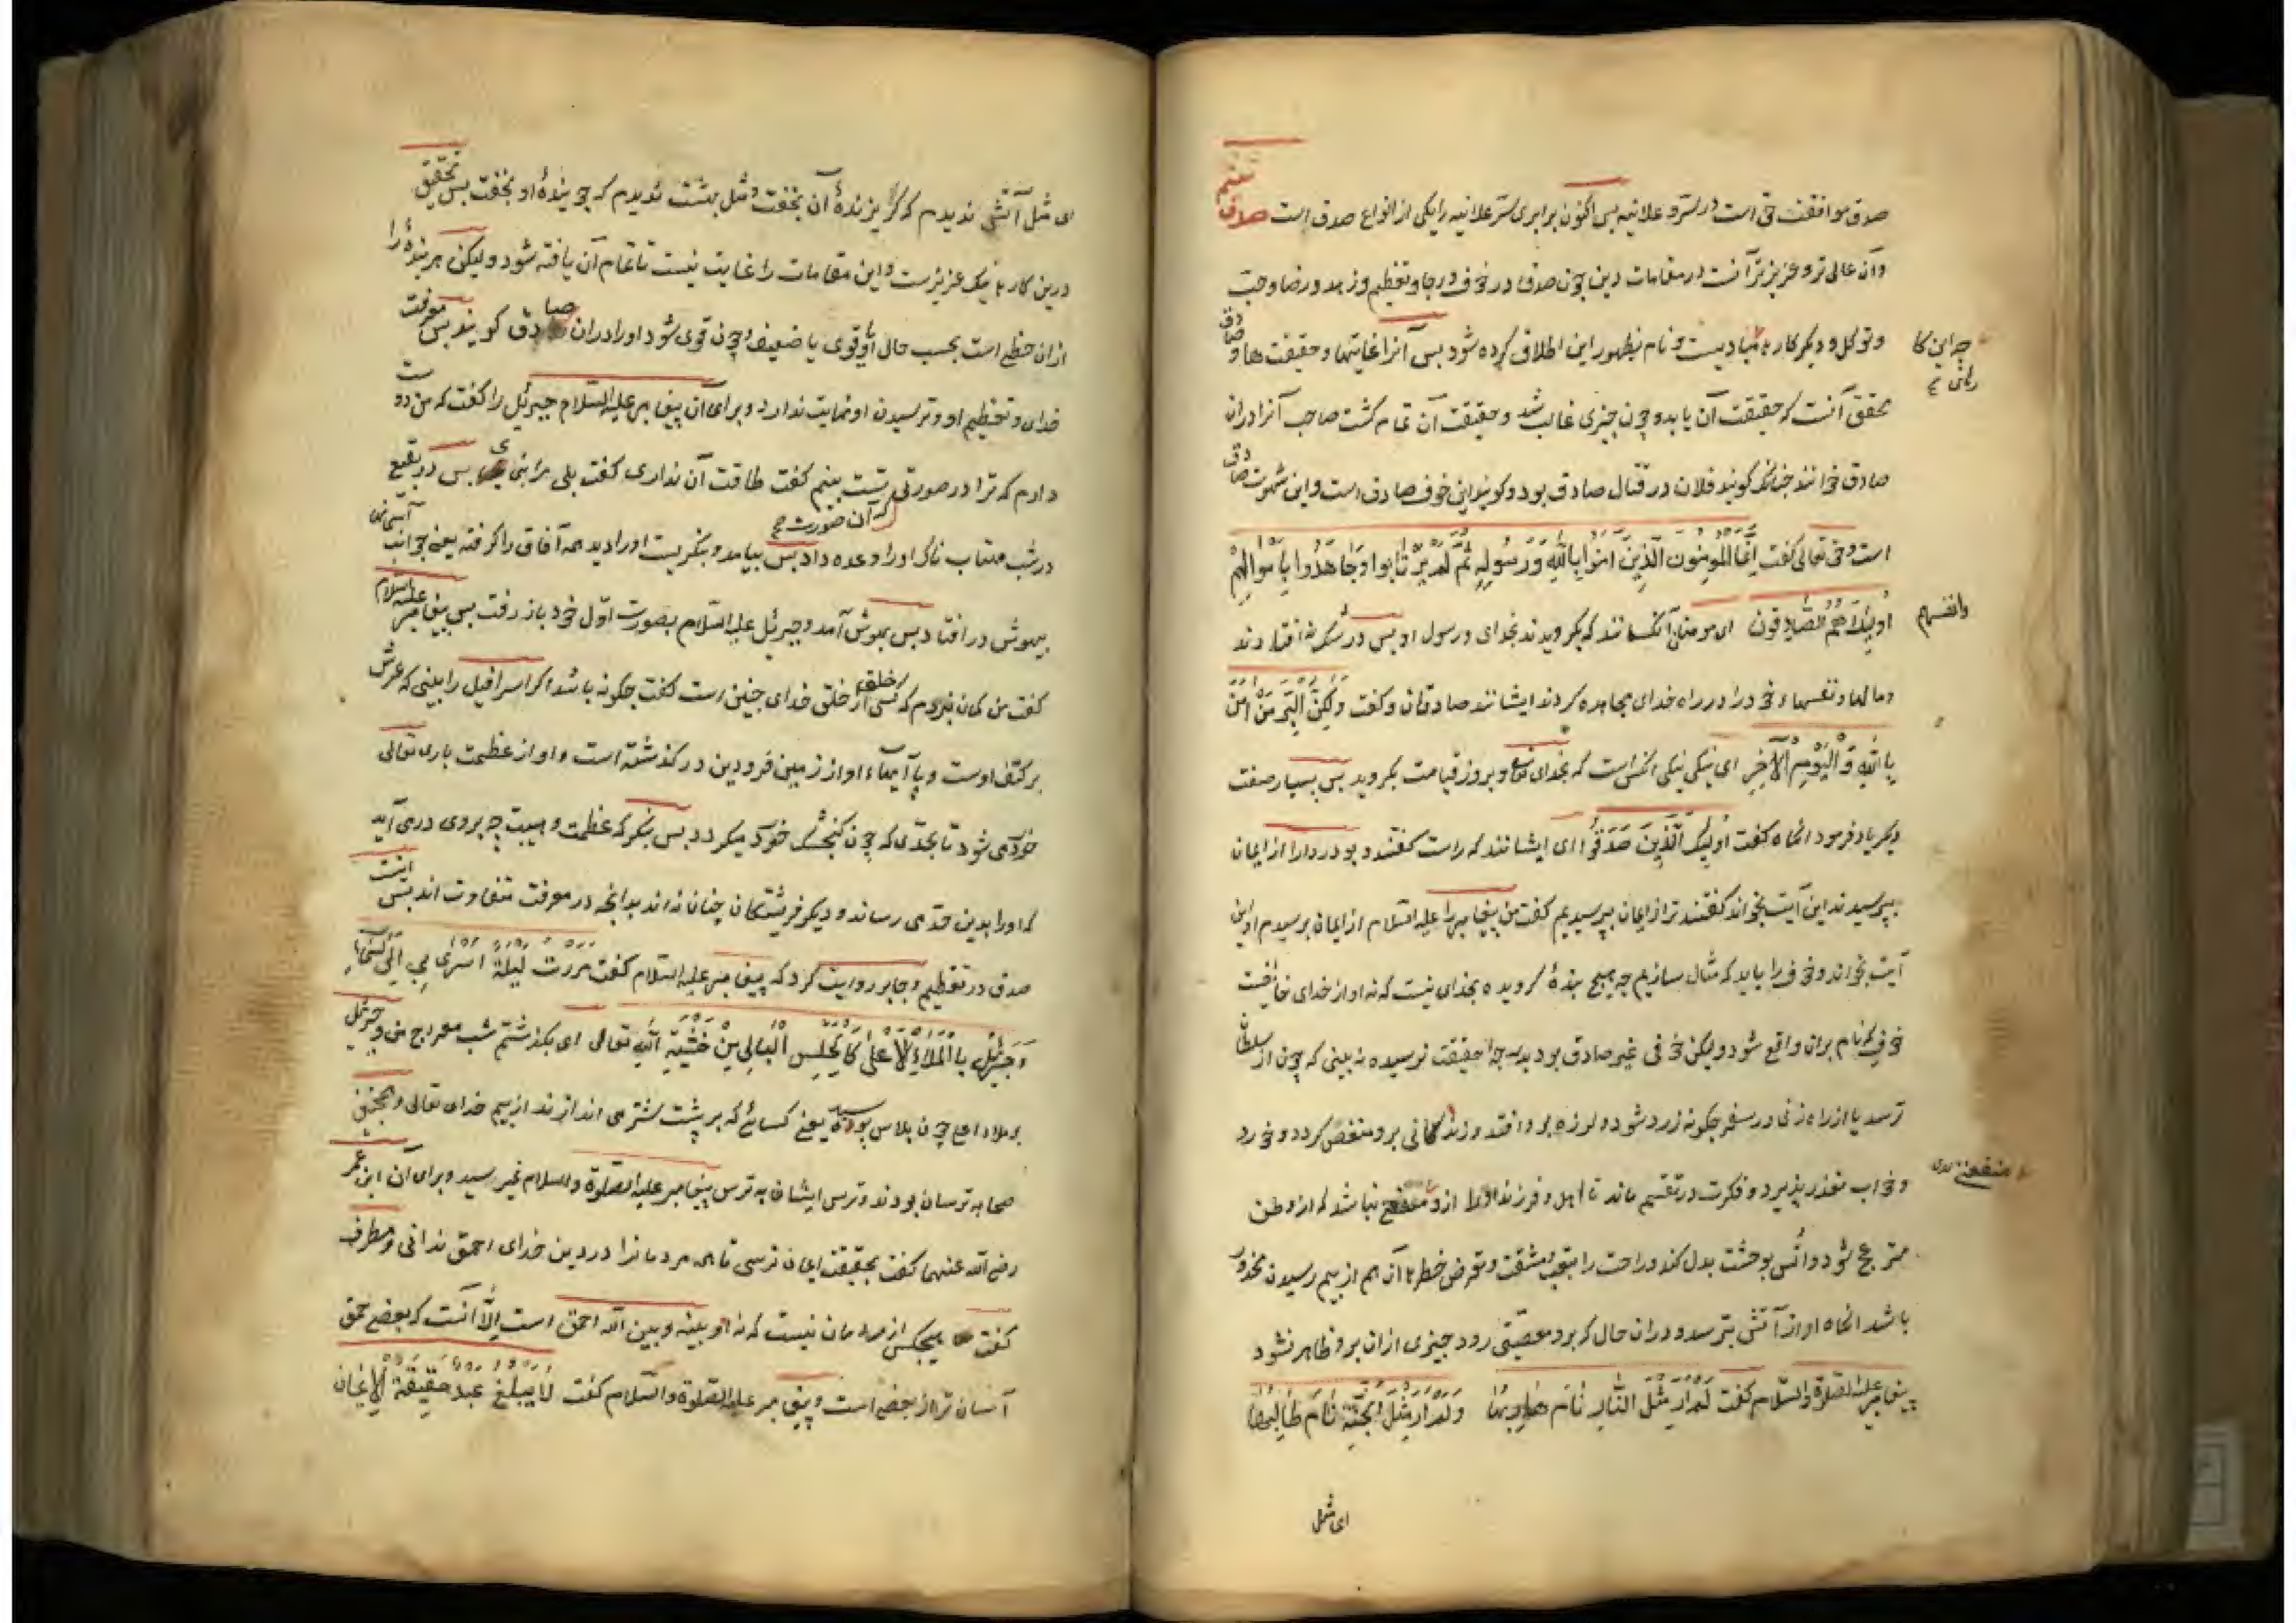 صدق موافقت حق است در سرّ و علانیه بس اکنون برابری سرّ علانیه را یکی از انواع صدق است صدق ششم
وآن عالی تر و عزیز تر آنست در مقامات دین چون صدق در خوف و رجا و تعظیم و زهد و رضا و حب
وتوکل و دیکر کارها مبادیست و نام بظهور این اطلاق کرده شود بس آنرا غایتها و حقیقت ها و صادق
محقق آنست که حقیقت آن یابد و چون چیزی غالب شد و حقیقت آن تمام کشت صاحب آنرا دران
صادق خوانند جنانکه کویند فلان در قتال صادق بود و کویند این خوف صادق است و این شهوت صادق
است وحق تعالی کفت اِنَّمَا المُومِنُون الَّذِینَ امَنُوا بِاللّٰهِ وَرَسُولِهِ ثُمَّ لَم یَرتَابُوا وَجَاهَدُوا بِاَموَالِهِم
وانفسهم
اُولٰئِكَ هُمُ الصَّادِقُونَ ای مومنان آنکسانند که بکرویدند بخدای و رسول او بس در شک نه افتادند
ومالها و نفسها خود را در راه خدای مجاهده کردند ایشانند صادقان و کفت وَلٰکِنَّ البِرَّ مَن اٰمَنَ
بِاللّٰهِ وَ الیَومِ الاٰخِرِ ای نیکی نیکی انکس است که بخدای تعالی و بروز قیامت بکروید بس بسیار صفت
دیکر یاد فرمود انکاه کفت اُولٰئِكَ الَّذِینَ صَدَقُوا ای ایشانند که راست کفتند و بوذر را از ایمان
ببرسیدند این آیت بخواند کفتند ترا از ایمان ببرسیدیم کفت من پیغامبر را علیه السلام از ایمان برسیدم او این
آیت بخواند وخوف را باید که مثال سازیم چه هیچ بندهٔ کرویده بخدای نیست که نه او از خدای خایفست
خوفی که نام بران واقع شود ولیکن خوفی غیر صادق بود بدرجهٔ حقیقت نرسیده نه بینی که چون از سلطان
ترسد یا از راه زنی در سفر جکونه زرد شود و لرزه برو افتد و زندکانی برو منغص کردد و خورد
و خواب متعذر پذیرد و فکرت در تقسیم ماند تا اهل و فرزند او را ازو منتفع نباشد که از وطن
منزعج شود و اُنس بوحشت بدل کند و راحت را بتعب و مشقت و تعرض خطرها آن هم از بیم رسیدن محذور
باشد انکاه او از آتش بترسد و دران حال که برو معصیتی رود چیزی ازان برو ظاهر نشود
پیغامبر علیه الصلوة والسّلام کفت لَم اَرَ مِثلَ النَّارِ نَامَ هَارِبُهَا وَلَم اَرَ مِثلَ الجَنَّةِ نَامَ طَالِبُهَا
ای مثل
ای مثل آتشی ندیدم که کریزندهٔ آن بخفت و مثل بهشت ندیدم که جویندهٔ او بخفت بس تحقیق
درین کارها نیک عزیزست و این مقامات را غایت نیست تا تمام آن یافته شود ولیکن هر بندهٔ را
ازان حظی است بحسب حال او قوی یا ضعیف و چون قوی شود او را دران صادق کویند بس معرفت
خدای و تعظیم او و ترسیدن او نهایت ندارد و برای آن پیغامبر علیه السّلام جبرئیل را کفت که من دوست
دارم که ترا در صورتی که آن صورت تست بینم کفت طاقت آن نداری کفت بلی مرا بنمای بس در بقیع
در شب مهتاب ناک او را وعده داد بس بیامد و بنکریست او را دید همه آفاق را کرفته یعنی جوانب آسمان
بیهوش در افتاد بس بهوش آمد و جبرئیل علیه السّلام بصورت اوّل خود باز رفت بس پیغامبر علیه السلام
کفت من کمان نبردم که کسی از خلق خدای جنین است کفت جکونه باشد اکر اسرافیل را بینی که عرش
بر کتف اوست و پایهاء او از زمین فرودین در کذشته است و او از عظمت باری تعالی
خورد می شود تا بحدّی که چون کنجشک خورد میکردد بس بنکر که عظمت و هیبت چه بروی درمی آید
که او را بدین حدّ می رساند و دیکر فریشتکان چنان نه اند بدانچه در معرفت متفاوت اند بس اینست
صدق در تعظیم و جابر روایت کرد که پیغامبر علیه السّلام کفت مَرَرتُ لَیلَةَ اُسرِیَ بِی اِلَی السَّمَاءِ
وَجِبرَئِیلُ بِالمَلَاءِ الاَعلٰی کَالحِلسِ البَالِی مِن خَشیَةِ اللّٰهِ تعالی ای بکذشتم شب معراج من و جبرئیل
بر ملاء اعلی چون پلاس بوسیده یعنی کسائی که بر پشت شتر می اندازند از بیم خدای تعالی و همچنین
صحابه ترسان بودند و ترس ایشان به ترس پیغامبر علیه الصلوة والسلام نمیرسید و برای آن ابن عمر
رضی الله عنهما کفت بحقیقت ایمان نرسی تا همه مردمانرا در دین خدای احمق ندانی و مطرف
کفت هیچکس از مردمان نیست که نه او بینه و بین الله احمق است اِلّا آنست که بعضی حمق
آسان تر از بعضی است و پیغامبر علیه الصّلوة والسّلام کفت لَا یَبلُغُ عَبدٌ حَقِیقَةَ الاِیمَانِ